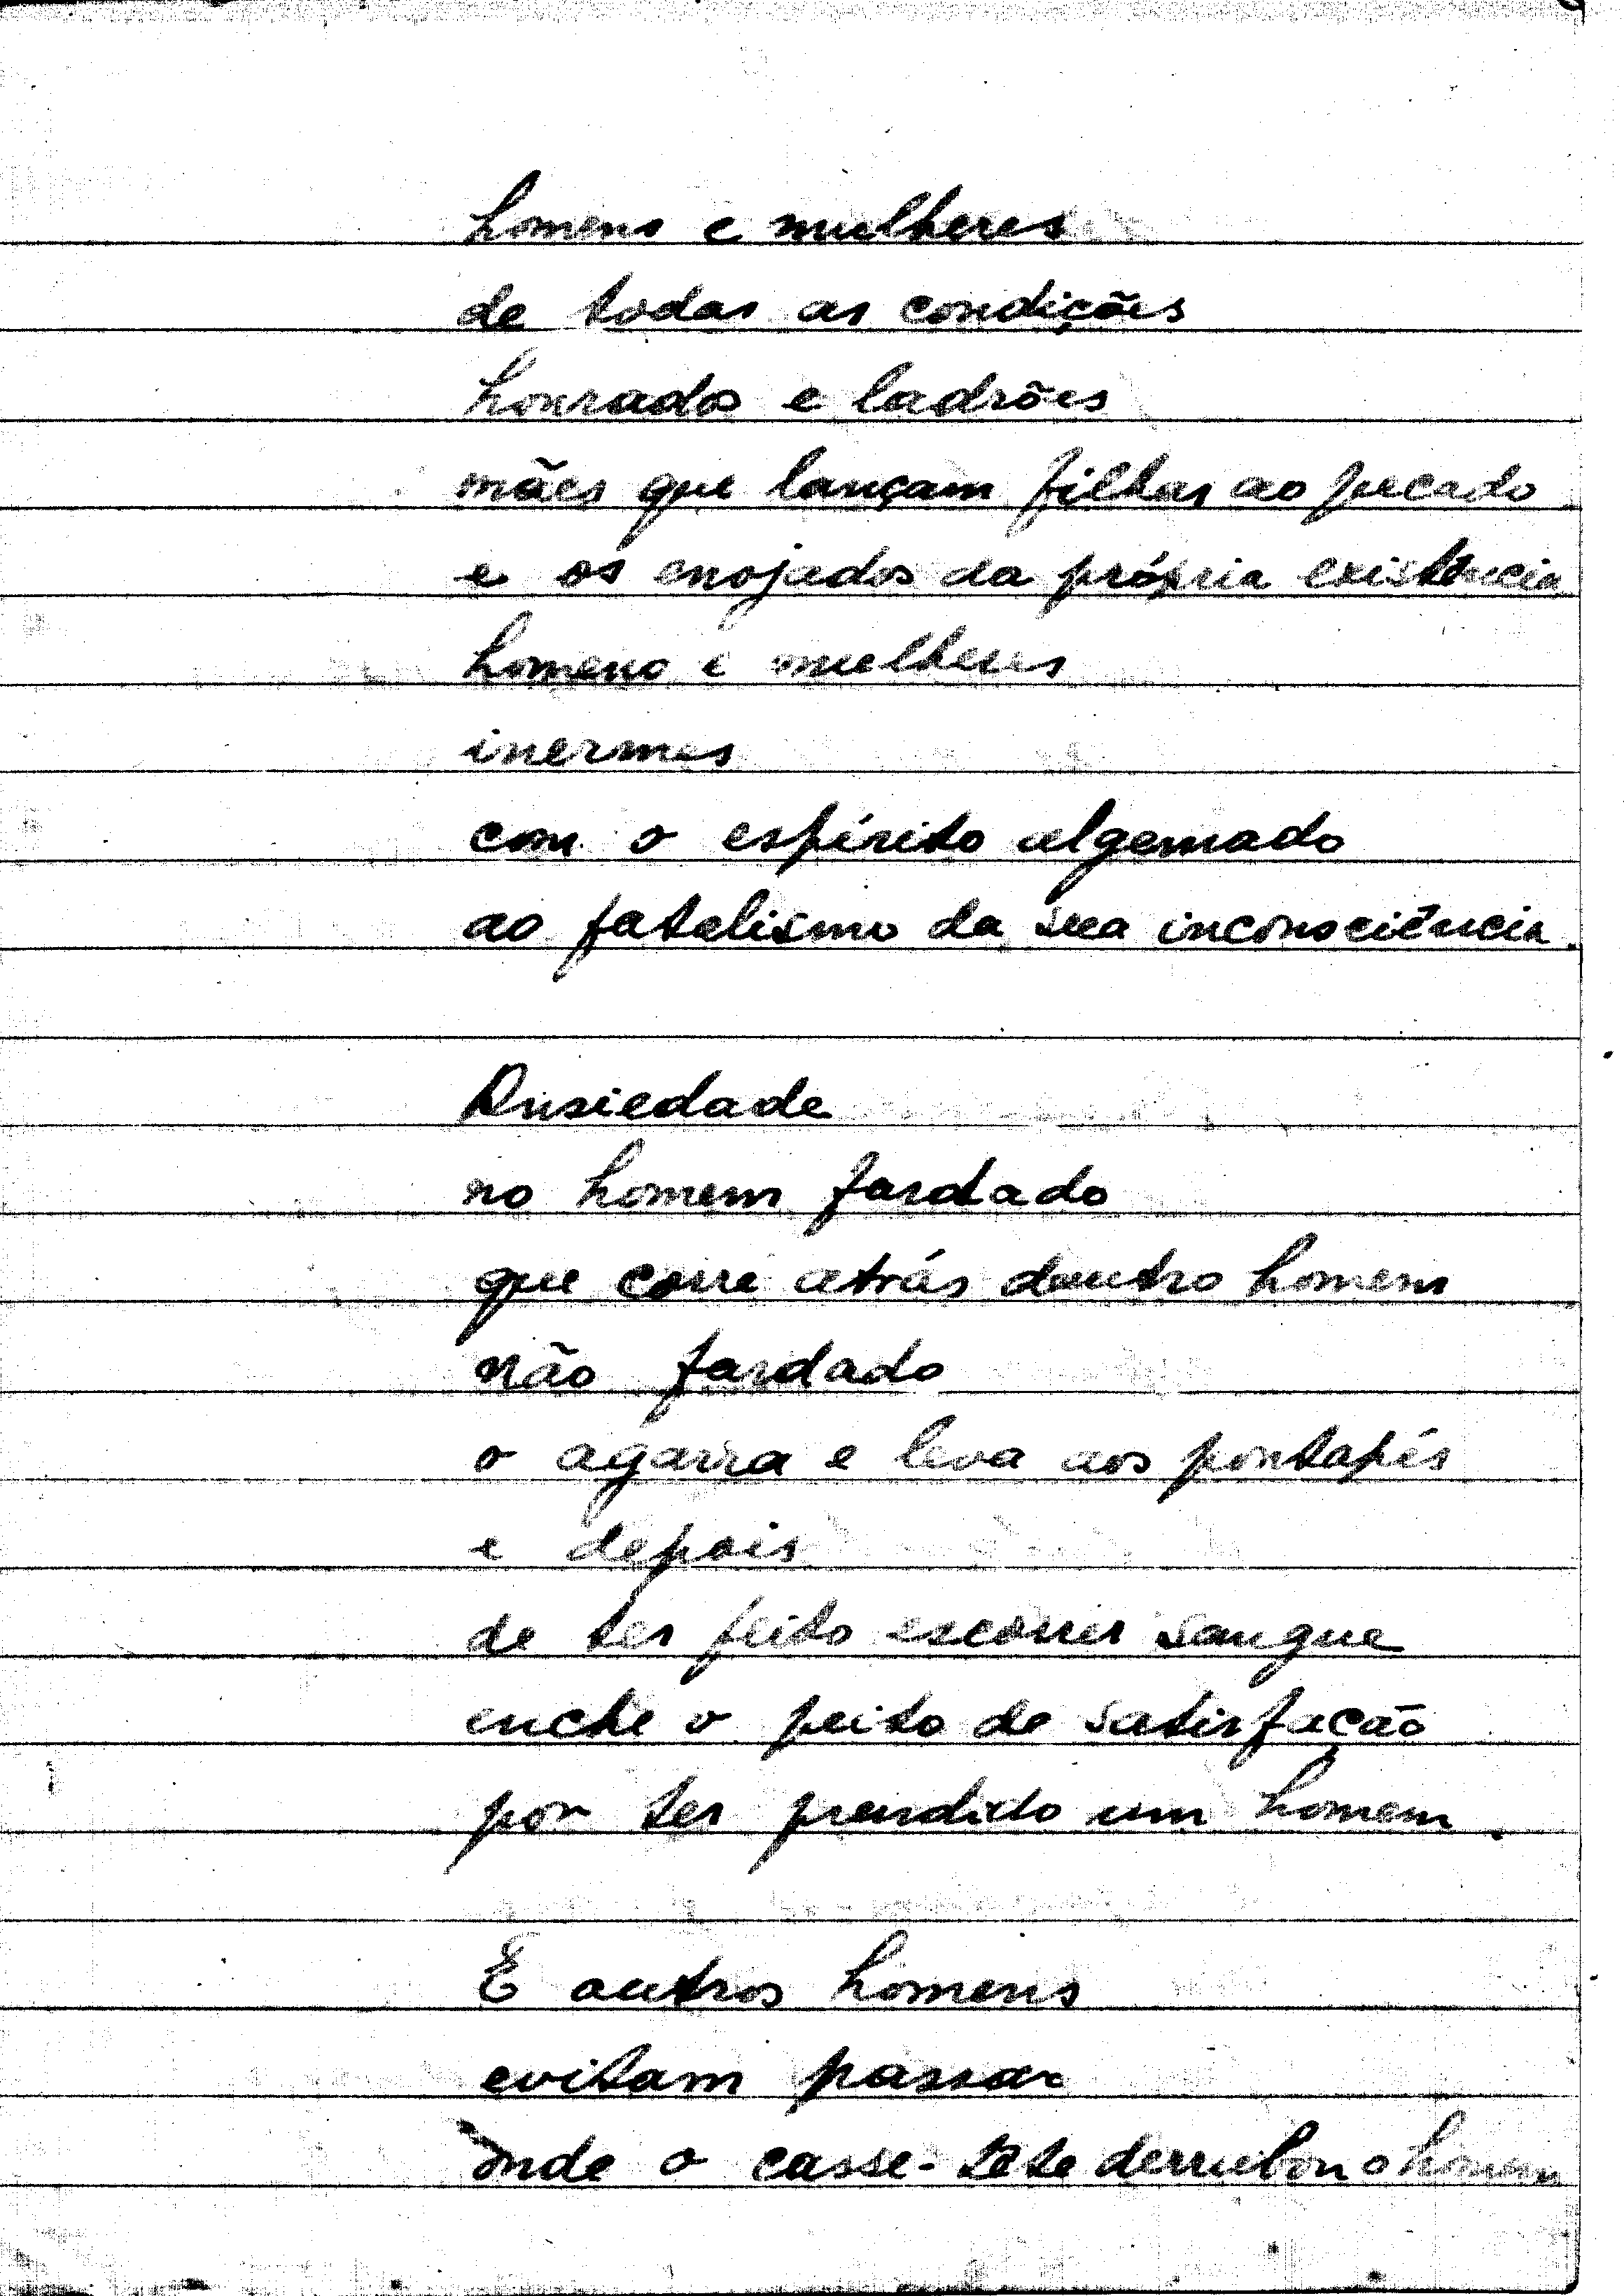 homens e mulheres
de todas as condições
honrados e ladrões
mães que lançam filhas ao pecado
e os enojados da própria existência
homens e mulheres
inermes
com o espírito algemado
ao fatalismo da sua inconsciência.
Ansiedade
no homem fardado
que corre atrás doutro homem
não fardado
o agarra e leva aos pontapés
e depois
de ter feito escorrer sangue
enche o peito de satisfação
por ter prendido um homem.
E outros homens
evitam passar
onde o casse-tete derrubou o homem